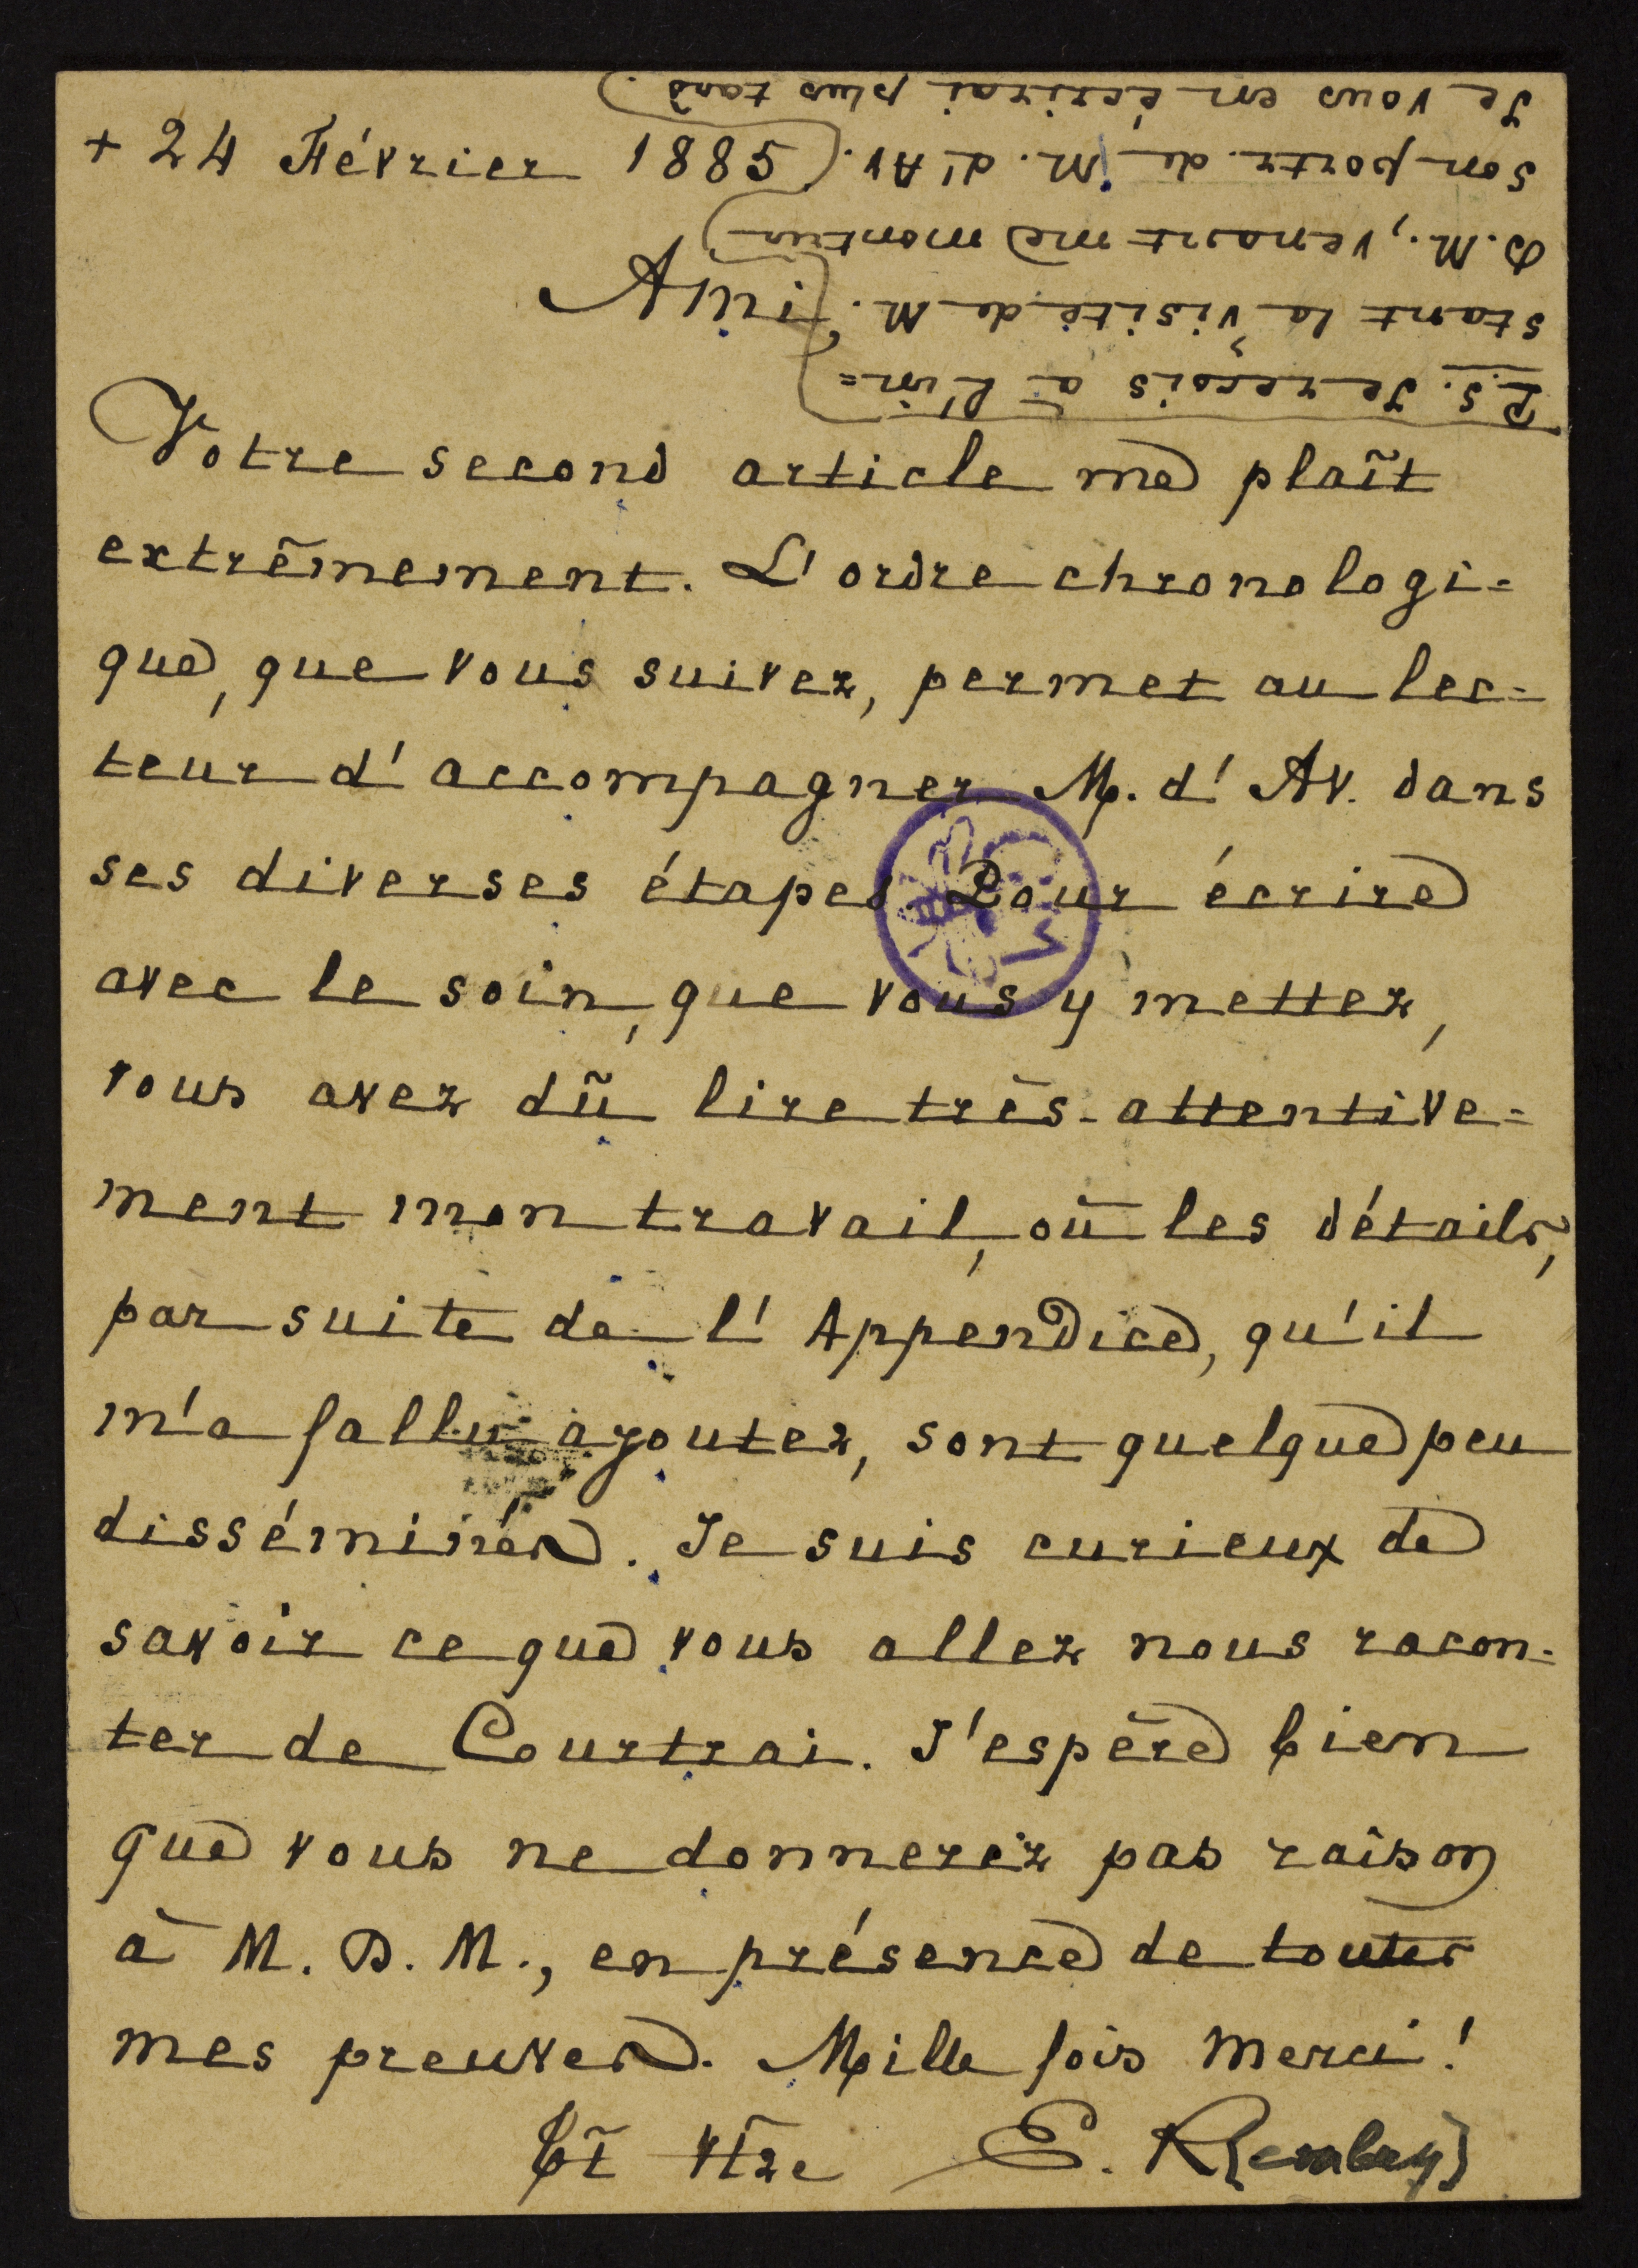 + 24 Février 1885
Ami
Votre second article me plaît
extrêmement. L'ordre chronologi=
que, que vous suivez, permet au lec=
teur d'accompagner M. d'Av. dans
ses diverses étapes. Pour écrire
avec le soin, que vous y mettez,
vous avez dû lire très-attentive=
ment mon travail, où les détails,
par suite de l'Appendice, qu'il
m'a fallu ajouter, sont quelque peu
disséminés. Je suis curieux de
savoir ce que vous allez nous racon=
ter de Courtrai. J'espère bien
que vous ne donnerez pas raison
à M. D. M., en présence de toutes
mes preuves. Mille fois merci!
Tt vtre E. R[embry]
P.S. Je reçois à l'in=
stant la visite de M.
D. M., venant me montrer
son portr. de M. d'Av.
Je vous en écrirai plus tard.